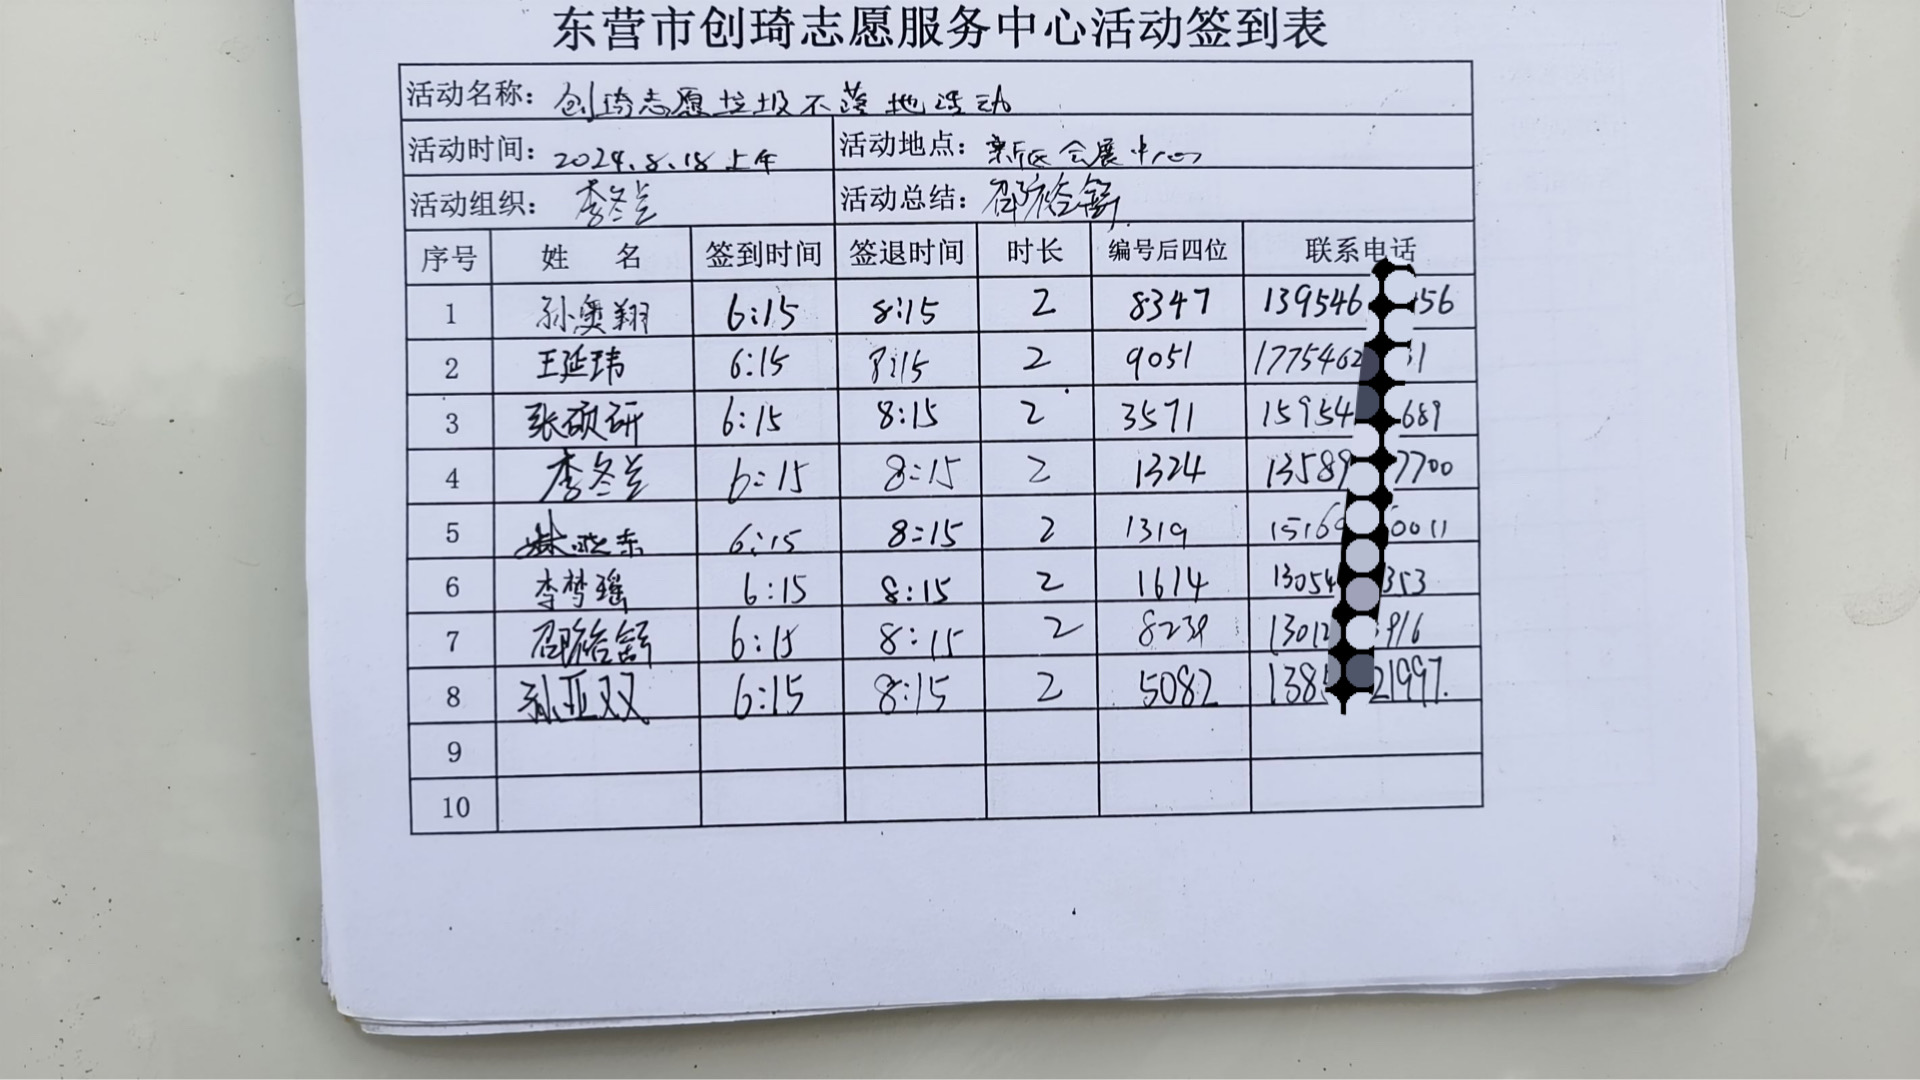 东营市创琦志愿服务中心活动签到表
活动名称：创琦志愿垃圾不落地活动
活动时间：2024.8.18上午 活动地点：新区会展中心
活动组织：李冬兰 活动总结：邵裕舒
序号 姓 名 签到时间 签退时间 时长 编号后四位 联系电话
1 孙奥翔 6:15 8:15 2 8347 139546 56
2 王延玮 6:15 8:15 2 9051 1775462 1
3 张硕研 6:15 8:15 2 3571 15954 689
4 李冬兰 6:15 8:15 2 1324 13589 7700
5 林晓东 6:15 8:15 2 1319 1516 0011
6 李梦瑶 6:15 8:15 2 1614 13054 353
7 邵裕舒 6:15 8:15 2 8239 13012 916
8 孙亚双 6:15 8:15 2 5082 138 21997.
9
10